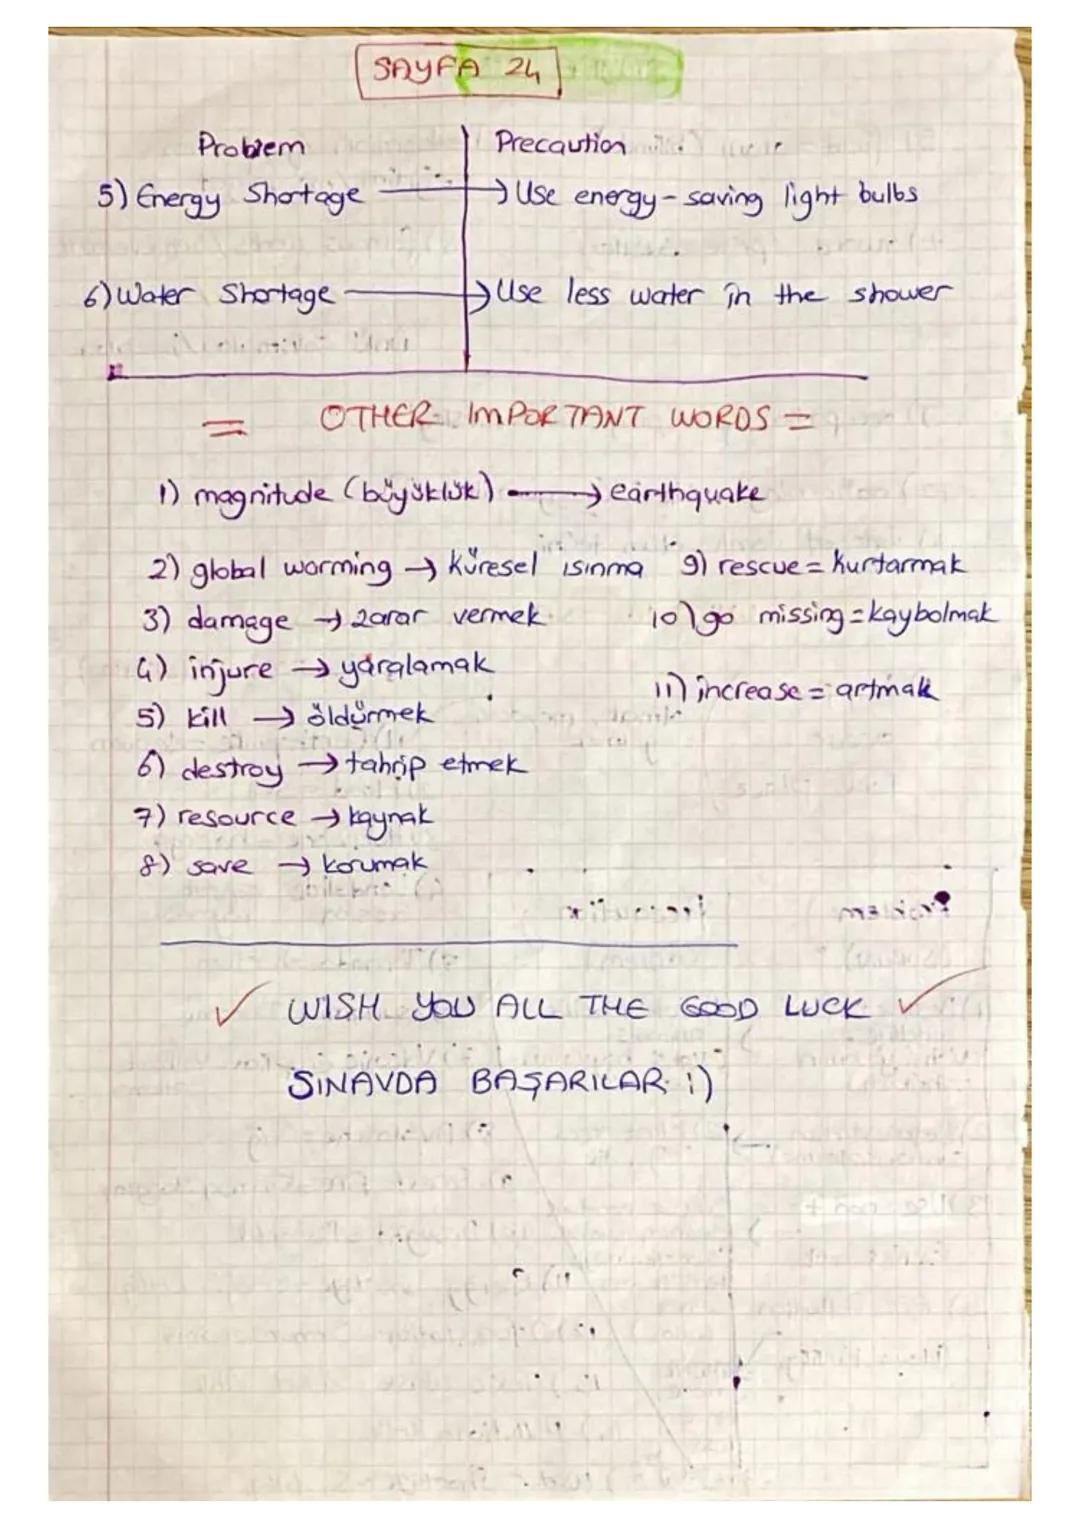 SAYFA 24
Problem Precaution
5) Energy Shortage → Use energy-saving light bulbs
6) Water Shortage → Use less water in the shower
= OTHER IMPORTANT WORDS =
1) magnitude (büyüklük) → earthquake
2) global worming → Küresel ısınma 9) rescue = kurtarmak
3) damage → zarar vermek 10) go missing = kaybolmak
4) injure → yaralamak
11) increase = artmak
5) kill → öldürmek
6) destroy → tahrip etmek
7) resource → kaynak
8) save → korumak
✓ WISH YOU ALL THE GOOD LUCK ✓
SINAVDA BAŞARILAR :)